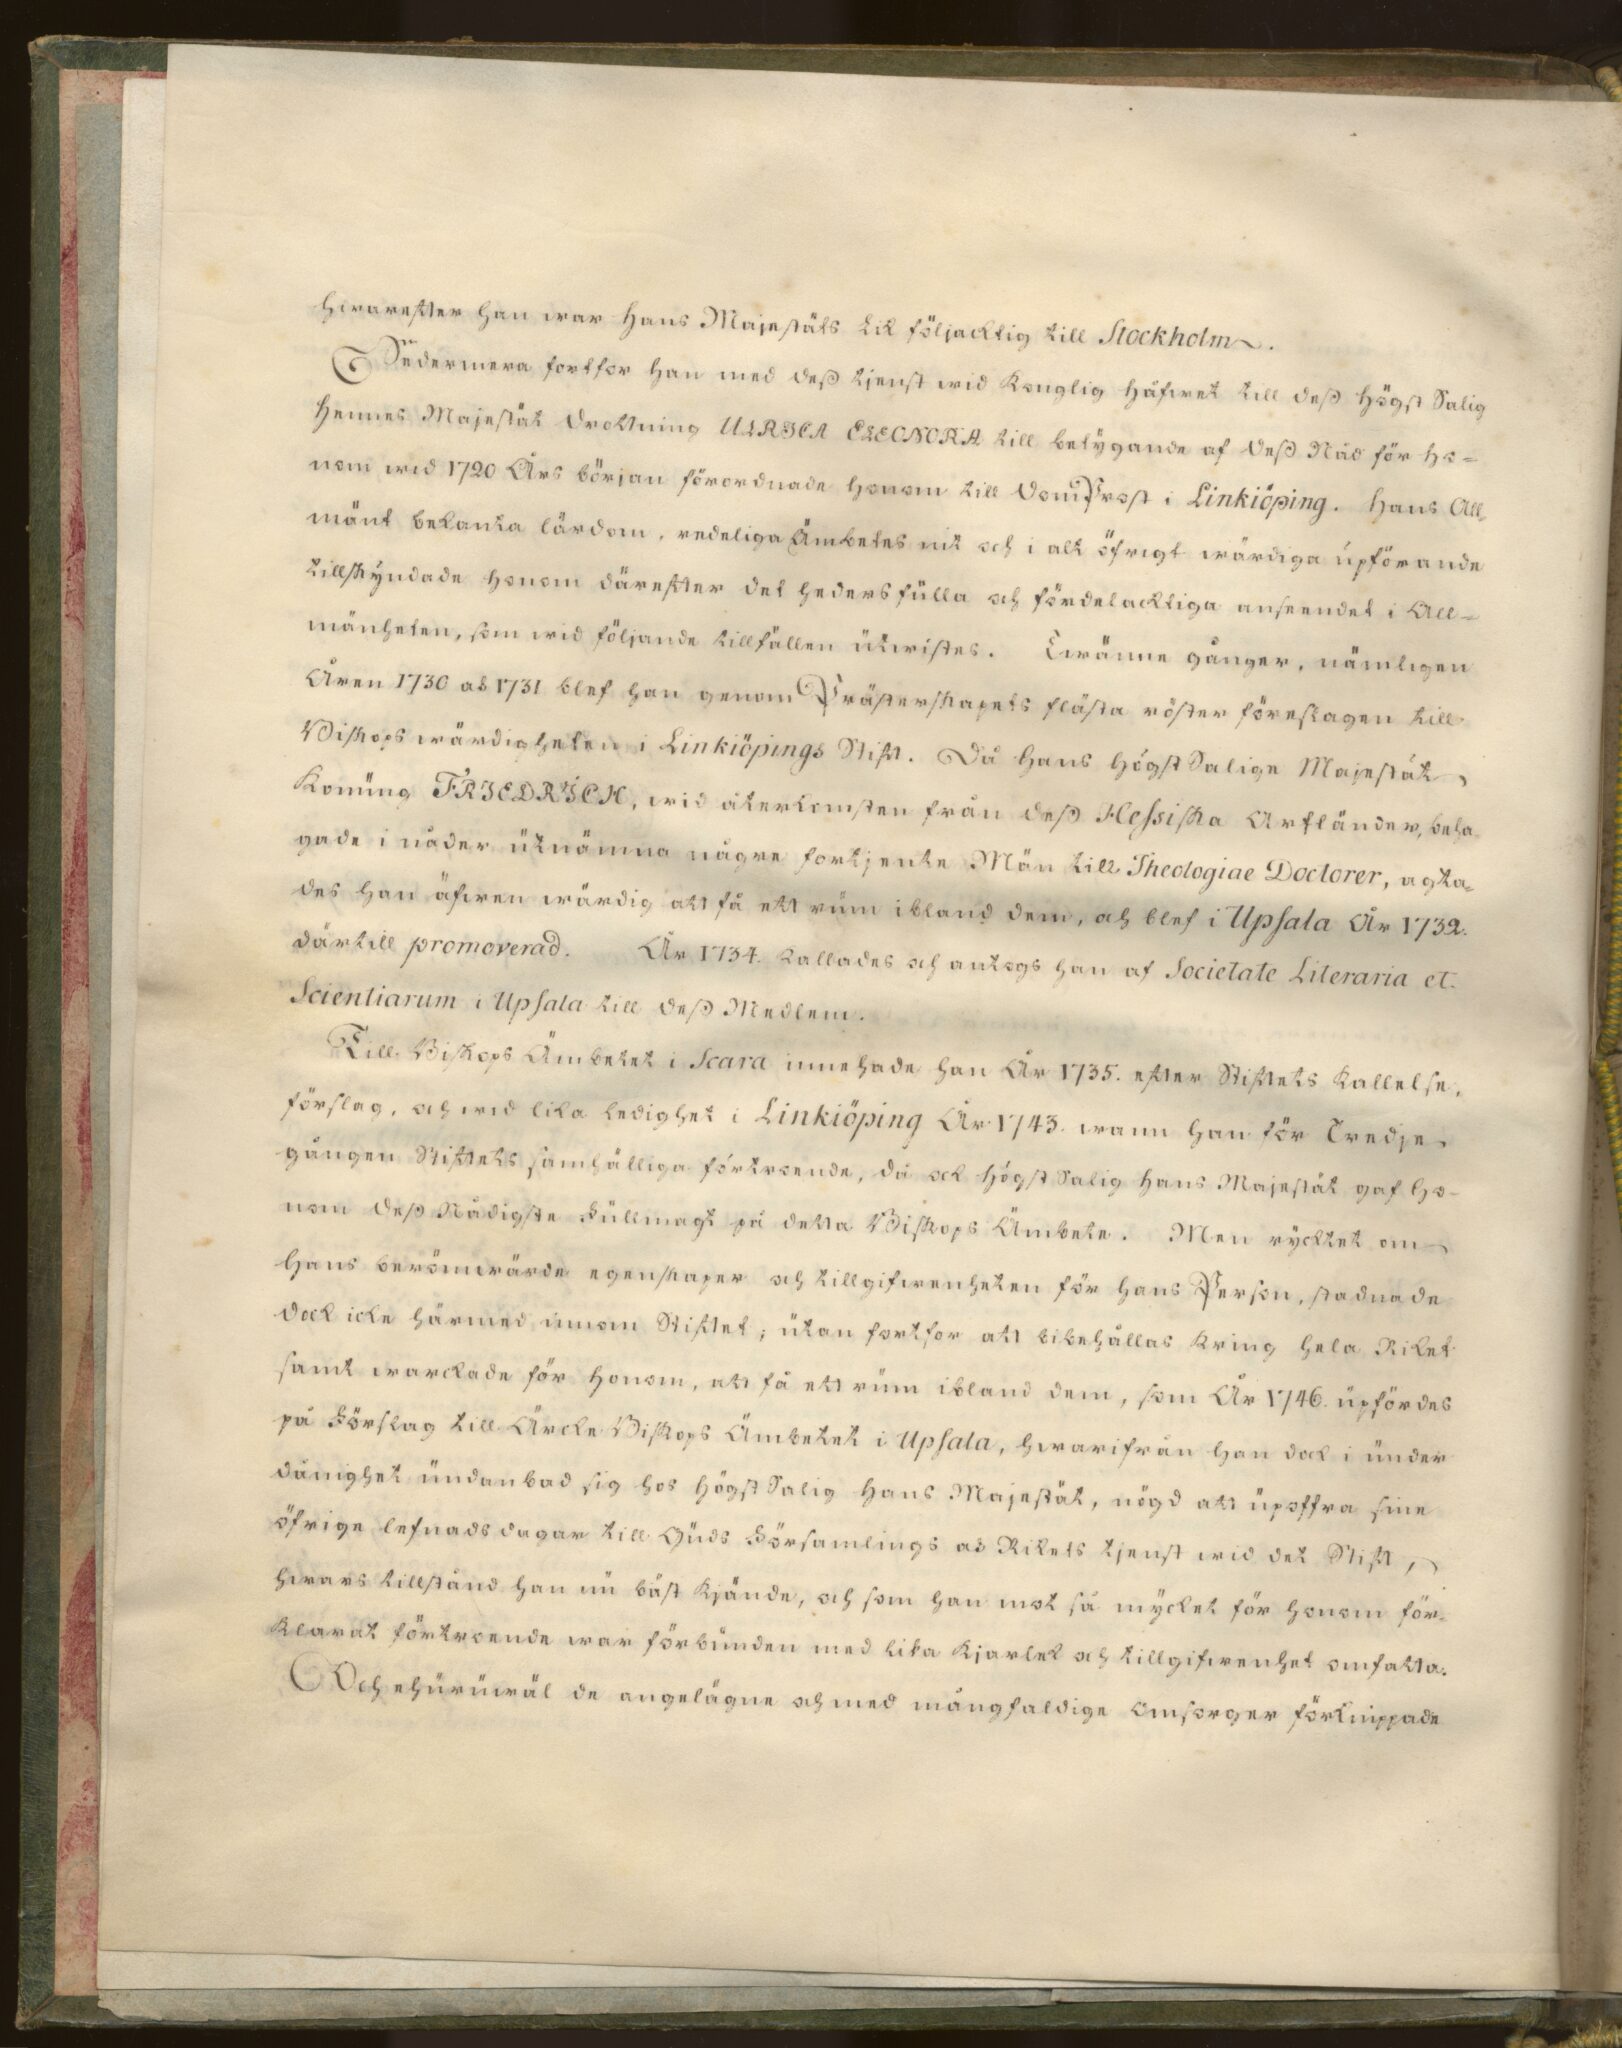 hwarefter han war Hans Majestäts Lik följacktig till Stockholm.
Sedermera fortfor han med deß tjenst wid Konglig Håfwet till deß Högst Salig
Hennes Majestät Drottning ULRICA ELEONORA till betygande af Deß Nåd för ho=
nom wid 1720 Års början förordnade honom till DomProst i Linkiöping. Hans All=
mänt bekanta lärdom, redeliga Ämbetes nit och i alt öfrigt wärdiga upförande
tillskyndade honom därefter det hedersfulla och fördelacktiga anseendet i All=
mänheten, som wid följande tillfällen utwistes. Twänne gånger, nämligen
Åren 1730 och 1731 blef han genom Prästerskapets flästa röster föreslagen till
Biskops wärdigheten i Linkiöpings Stift. Då Hans Högst Salige Majestät
Konung FRIEDRICH, wid återkomsten från deß Hessiska Arfländer, beha
gade i nåder utnämna någre fortjente Män till Theologiae Doctorer, agta=
des han äfwen wärdig att få ett rum ibland dem, och blef i Upsala År 1732.
därtill promoverad. År 1734. kallades och antogs han af Societate Literaria et
Scientiarum i Upsala till deß Medlem.
Till Biskops Ämbetet i Scara innehade han År 1735. efter Stiftets Kallelse,
förslag, och wid lika ledighet i Linkiöping År 1743. wann han för Tredje
gången Stiftets samhälliga förtroende, då ock Högst Salig Hans Majestät gaf ho=
nom Deß Nådigste Fullmagt på detta Biskops Ämbete. Men rycktet om
Hans berömwärde egenskaper och tillgifwenheten för Hans Person, stadnade
dock icke härmed innom Stiftet; utan fortfor att bibehållas kring hela Riket
samt warckade för Honom, att få ett rum ibland dem, som År 1746. upfördes
på Förslag till Ärcke Biskops Ämbetet i Upsala, hwarifrån han dock i under
dånighet undanbad sig hos Högst Salig Hans Majestät, nögd att upoffra sine
öfrige lefnads dagar till Guds Församlings och Rikets tjenst wid det Stift,
hwars tillstånd han nu bäst kjände, och som han mot så mycket för honom för=
klarat förtroende war förbunden med lika kjärlek och tillgifwenhet omfatta.
Och ehuruwäl de angelägne och med mångfaldige omsorger förknippade